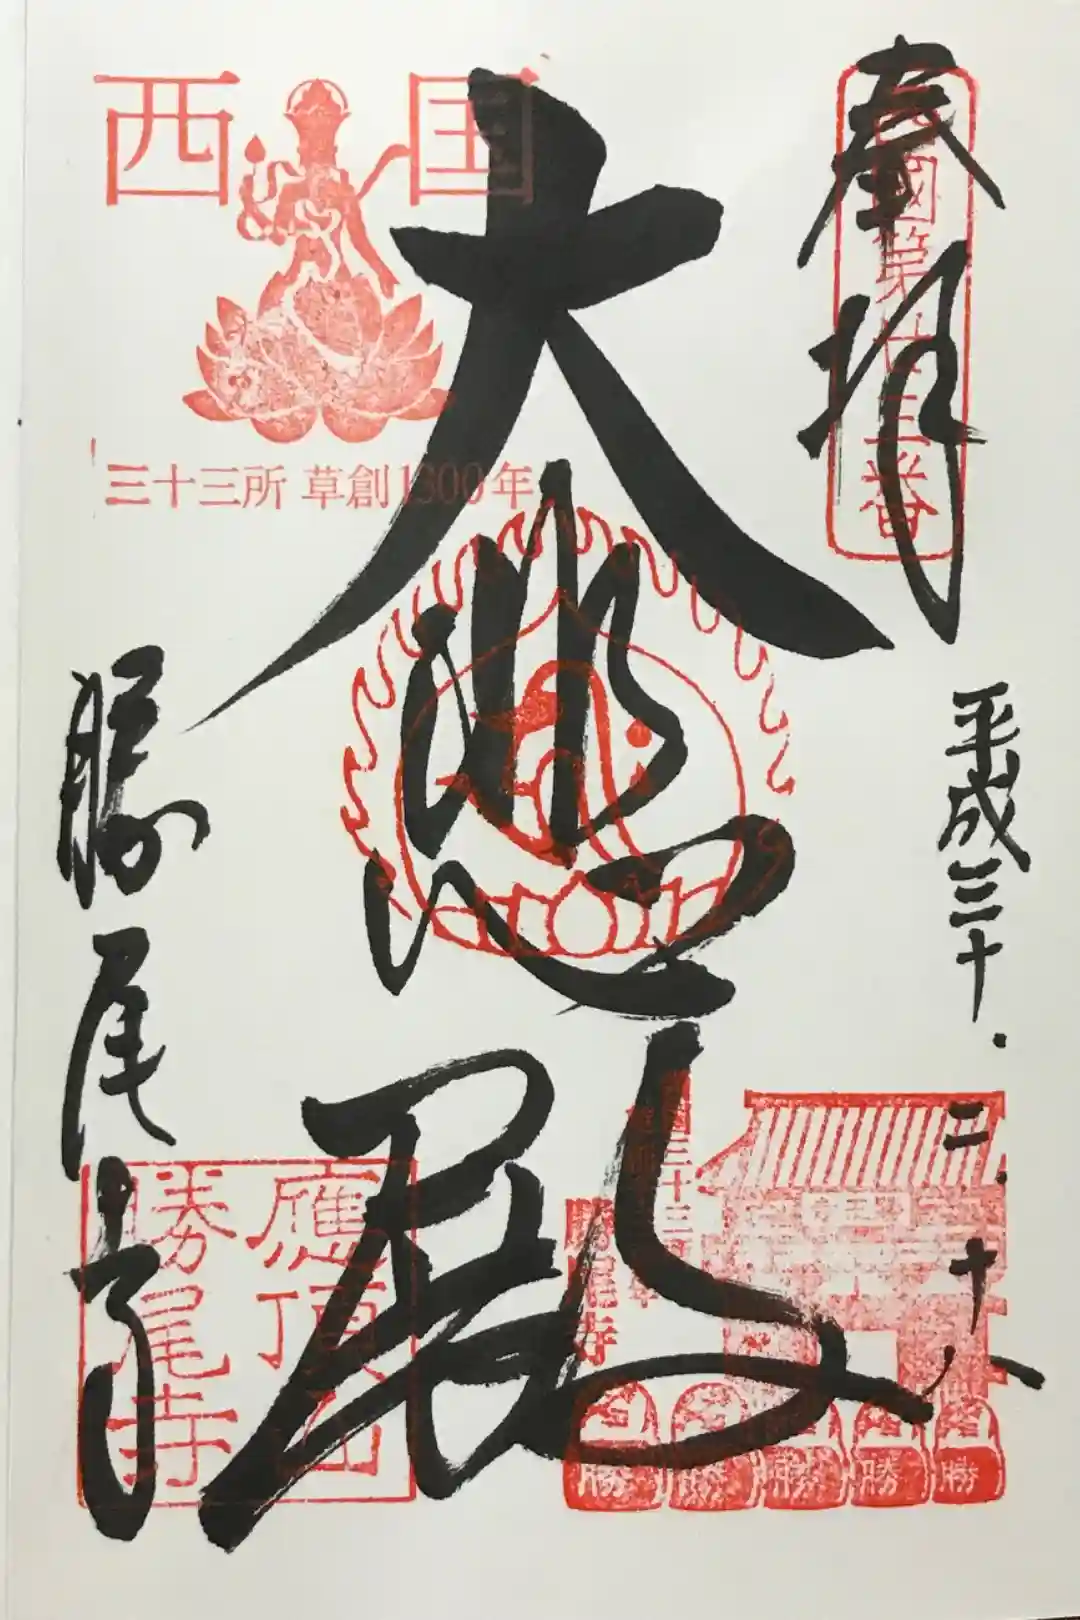 奉拝
西國第廿三番
平成三十.二.十八
大悲殿
西国
三十三所 草創1300年
勝尾寺
應頂山
勝尾寺
勝尾寺
勝
勝
勝
勝
勝